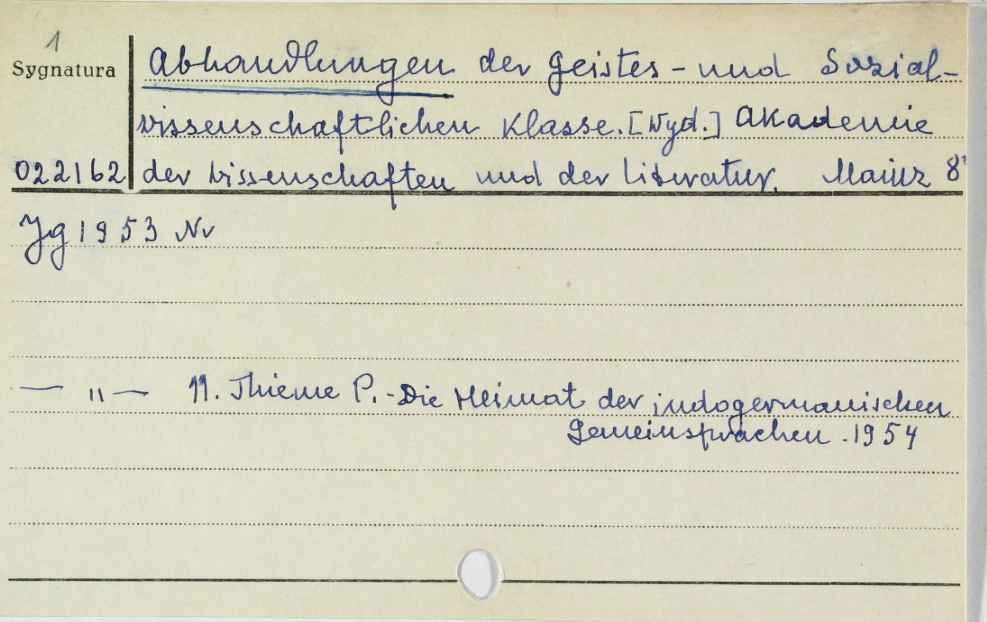 1
Sygnatura
Abhandlungen der Geistes- und Sozial-
wissenschaftlichen Klasse. [Wyd.] Akademie
022162 der Wissenschaften und der Literatur. Mainz 8°
Jg 1953 Nr
— " — 11. Thieme P. - Die Heimat der indogermanischen
Gemeinsprachen. 1954